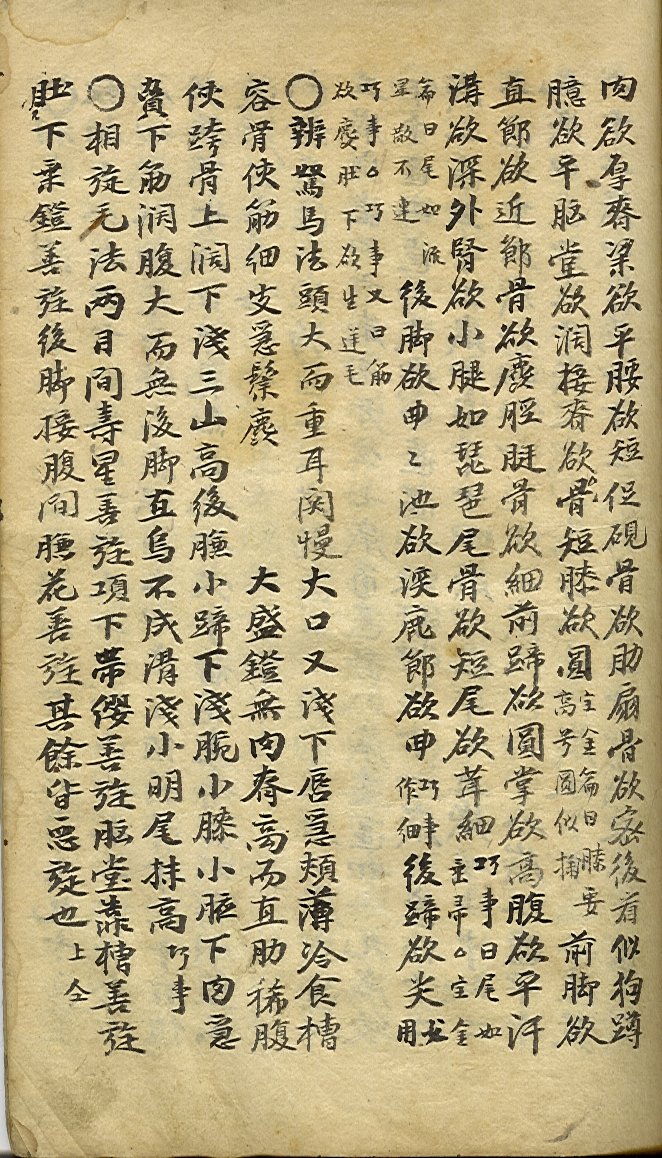 肉欲厚脊梁欲平腰欲短促硯骨欲肋扇骨欲密後看似狗蹲
臆欲平胸堂欲濶接脊欲骨短膝欲圓主金篇曰膝要高芳圓似掬前脚欲
直節欲近節骨欲麁脛腿骨欲細前蹄欲圓掌欲高腹欲平汗
溝欲深外腎欲小腿如琵琶尾骨欲短尾欲茸細巧事曰尾如垂帚△主金
篇曰尾如流星散不連後脚欲曲〻池欲深鹿節欲曲巧事作細後蹄欲尖
巧事△巧事又曰筋欲麁肚下欲生逆毛
〇辨駑馬法頭大而重耳闊慢大口又淺下唇急頬薄冷食槽
容骨使筋細皮急鬃麁 大盛鐙無肉脊高而直肋稀腹
使跨骨上濶下淺三山高後臁小蹄下淺腕小膝小胵下肉急
賁下筋濶腹大而無後脚直烏不成溝淺小明尾抹高巧事
〇相旋毛法兩目間壽星善旋項下帶纓善旋胸堂靠槽善旋
肚下乗鐙善旋後脚接腹間臁花善旋其餘皆悪旋也上仝